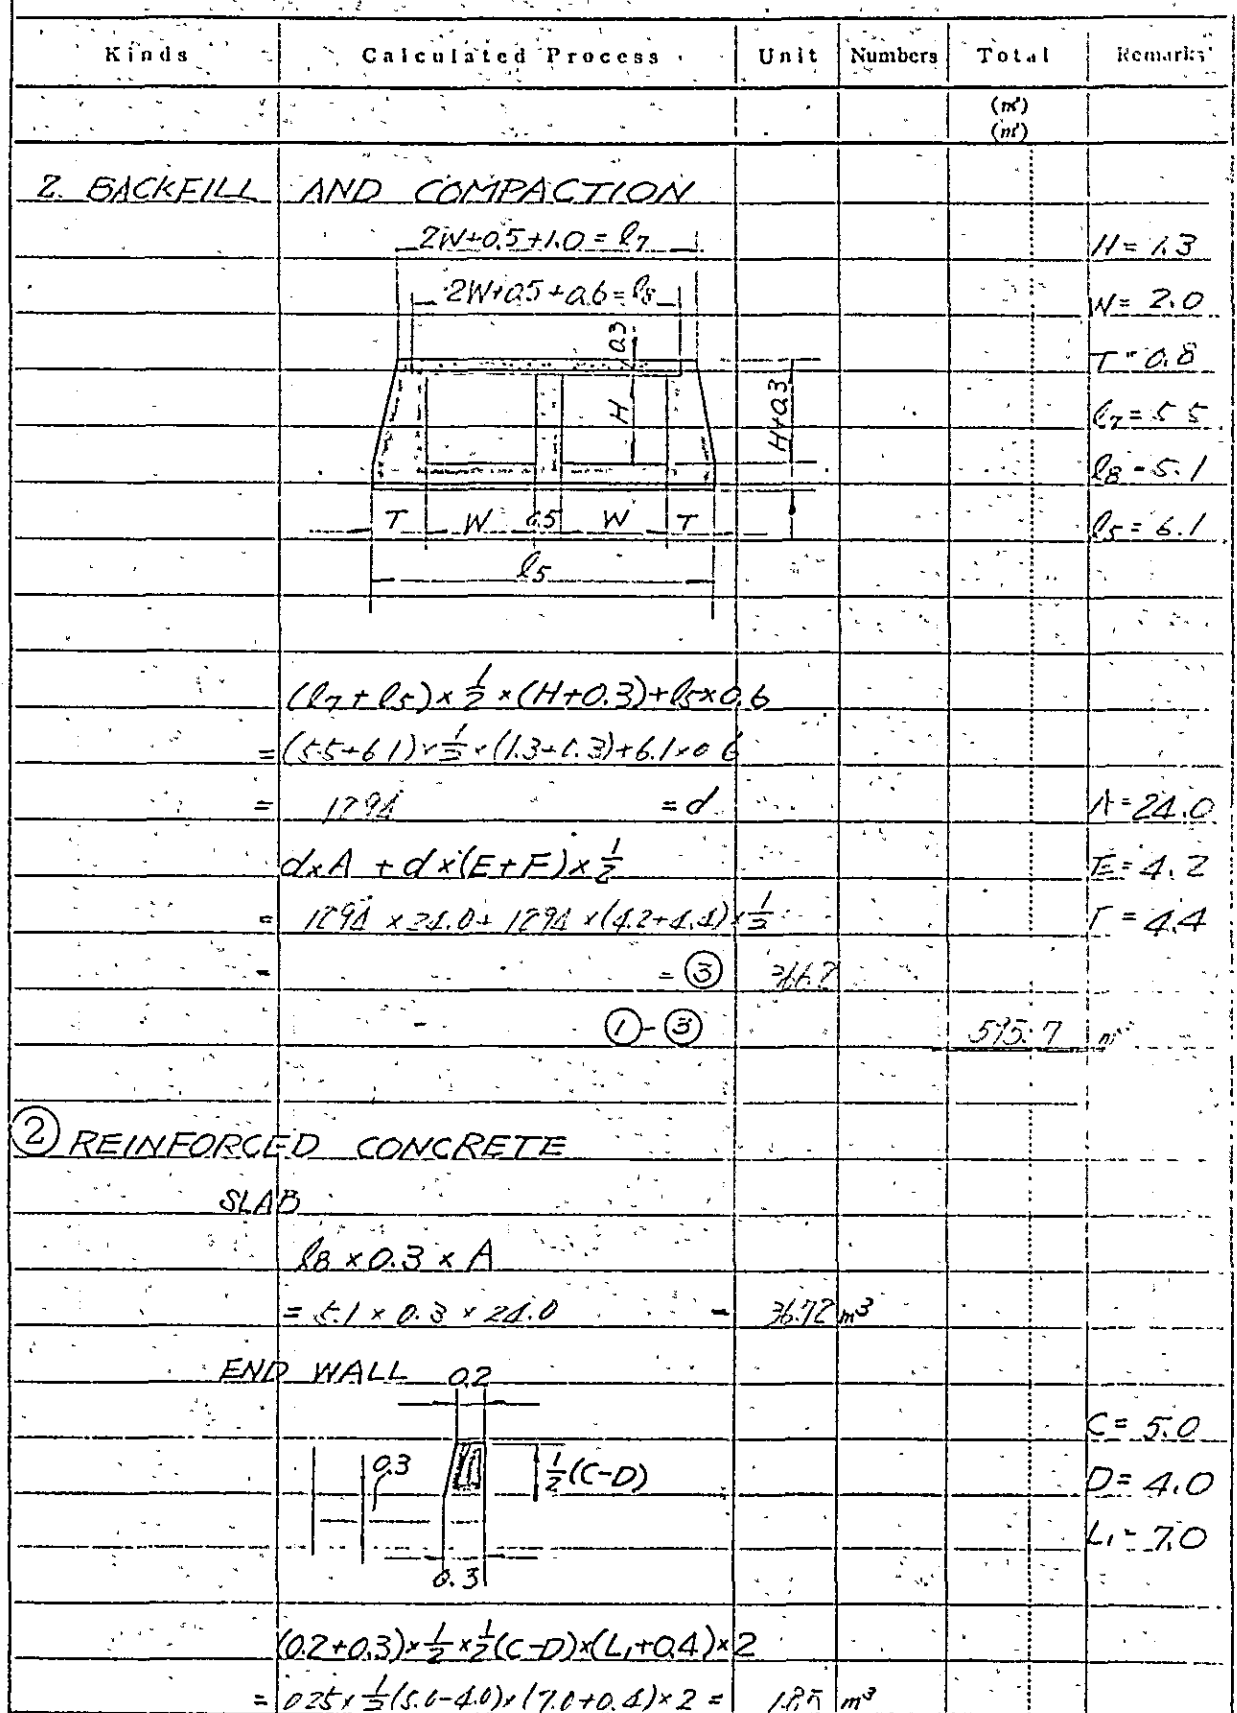 Kinds Calculated Process Unit Numbers Total Remarks
(m³)
(m²)
2. BACKFILL AND COMPACTION
2W+0.5+1.0=l7
H=1.3
2W+0.5+0.6=l8
W=2.0
0.3
T=0.8
H
H+0.3
l7=5.5
l8=5.1
T W 0.5 W T
l5=6.1
l5
(l7+l5)×1/2×(H+0.3)+l5×0.6
=(5.5+6.1)×1/2×(1.3+0.3)+6.1×0.6
= 12.94 =d
A=24.0
d×A+d×(E+F)×1/2
E=4.2
= 12.94×24.0+12.94×(4.2+4.4)×1/2
F=4.4
= =③ 366.2
①-③ 575.7 m³
② REINFORCED CONCRETE
SLAB
l8×0.3×A
=5.1×0.3×24.0 = 36.72 m³
END WALL 0.2
C=5.0
0.3 1/2(C-D)
D=4.0
L1=7.0
0.3
(0.2+0.3)×1/2×1/2(C-D)×(L1+0.4)×2
=0.25×1/2(5.0-4.0)×(7.0+0.4)×2= 1.85 m³